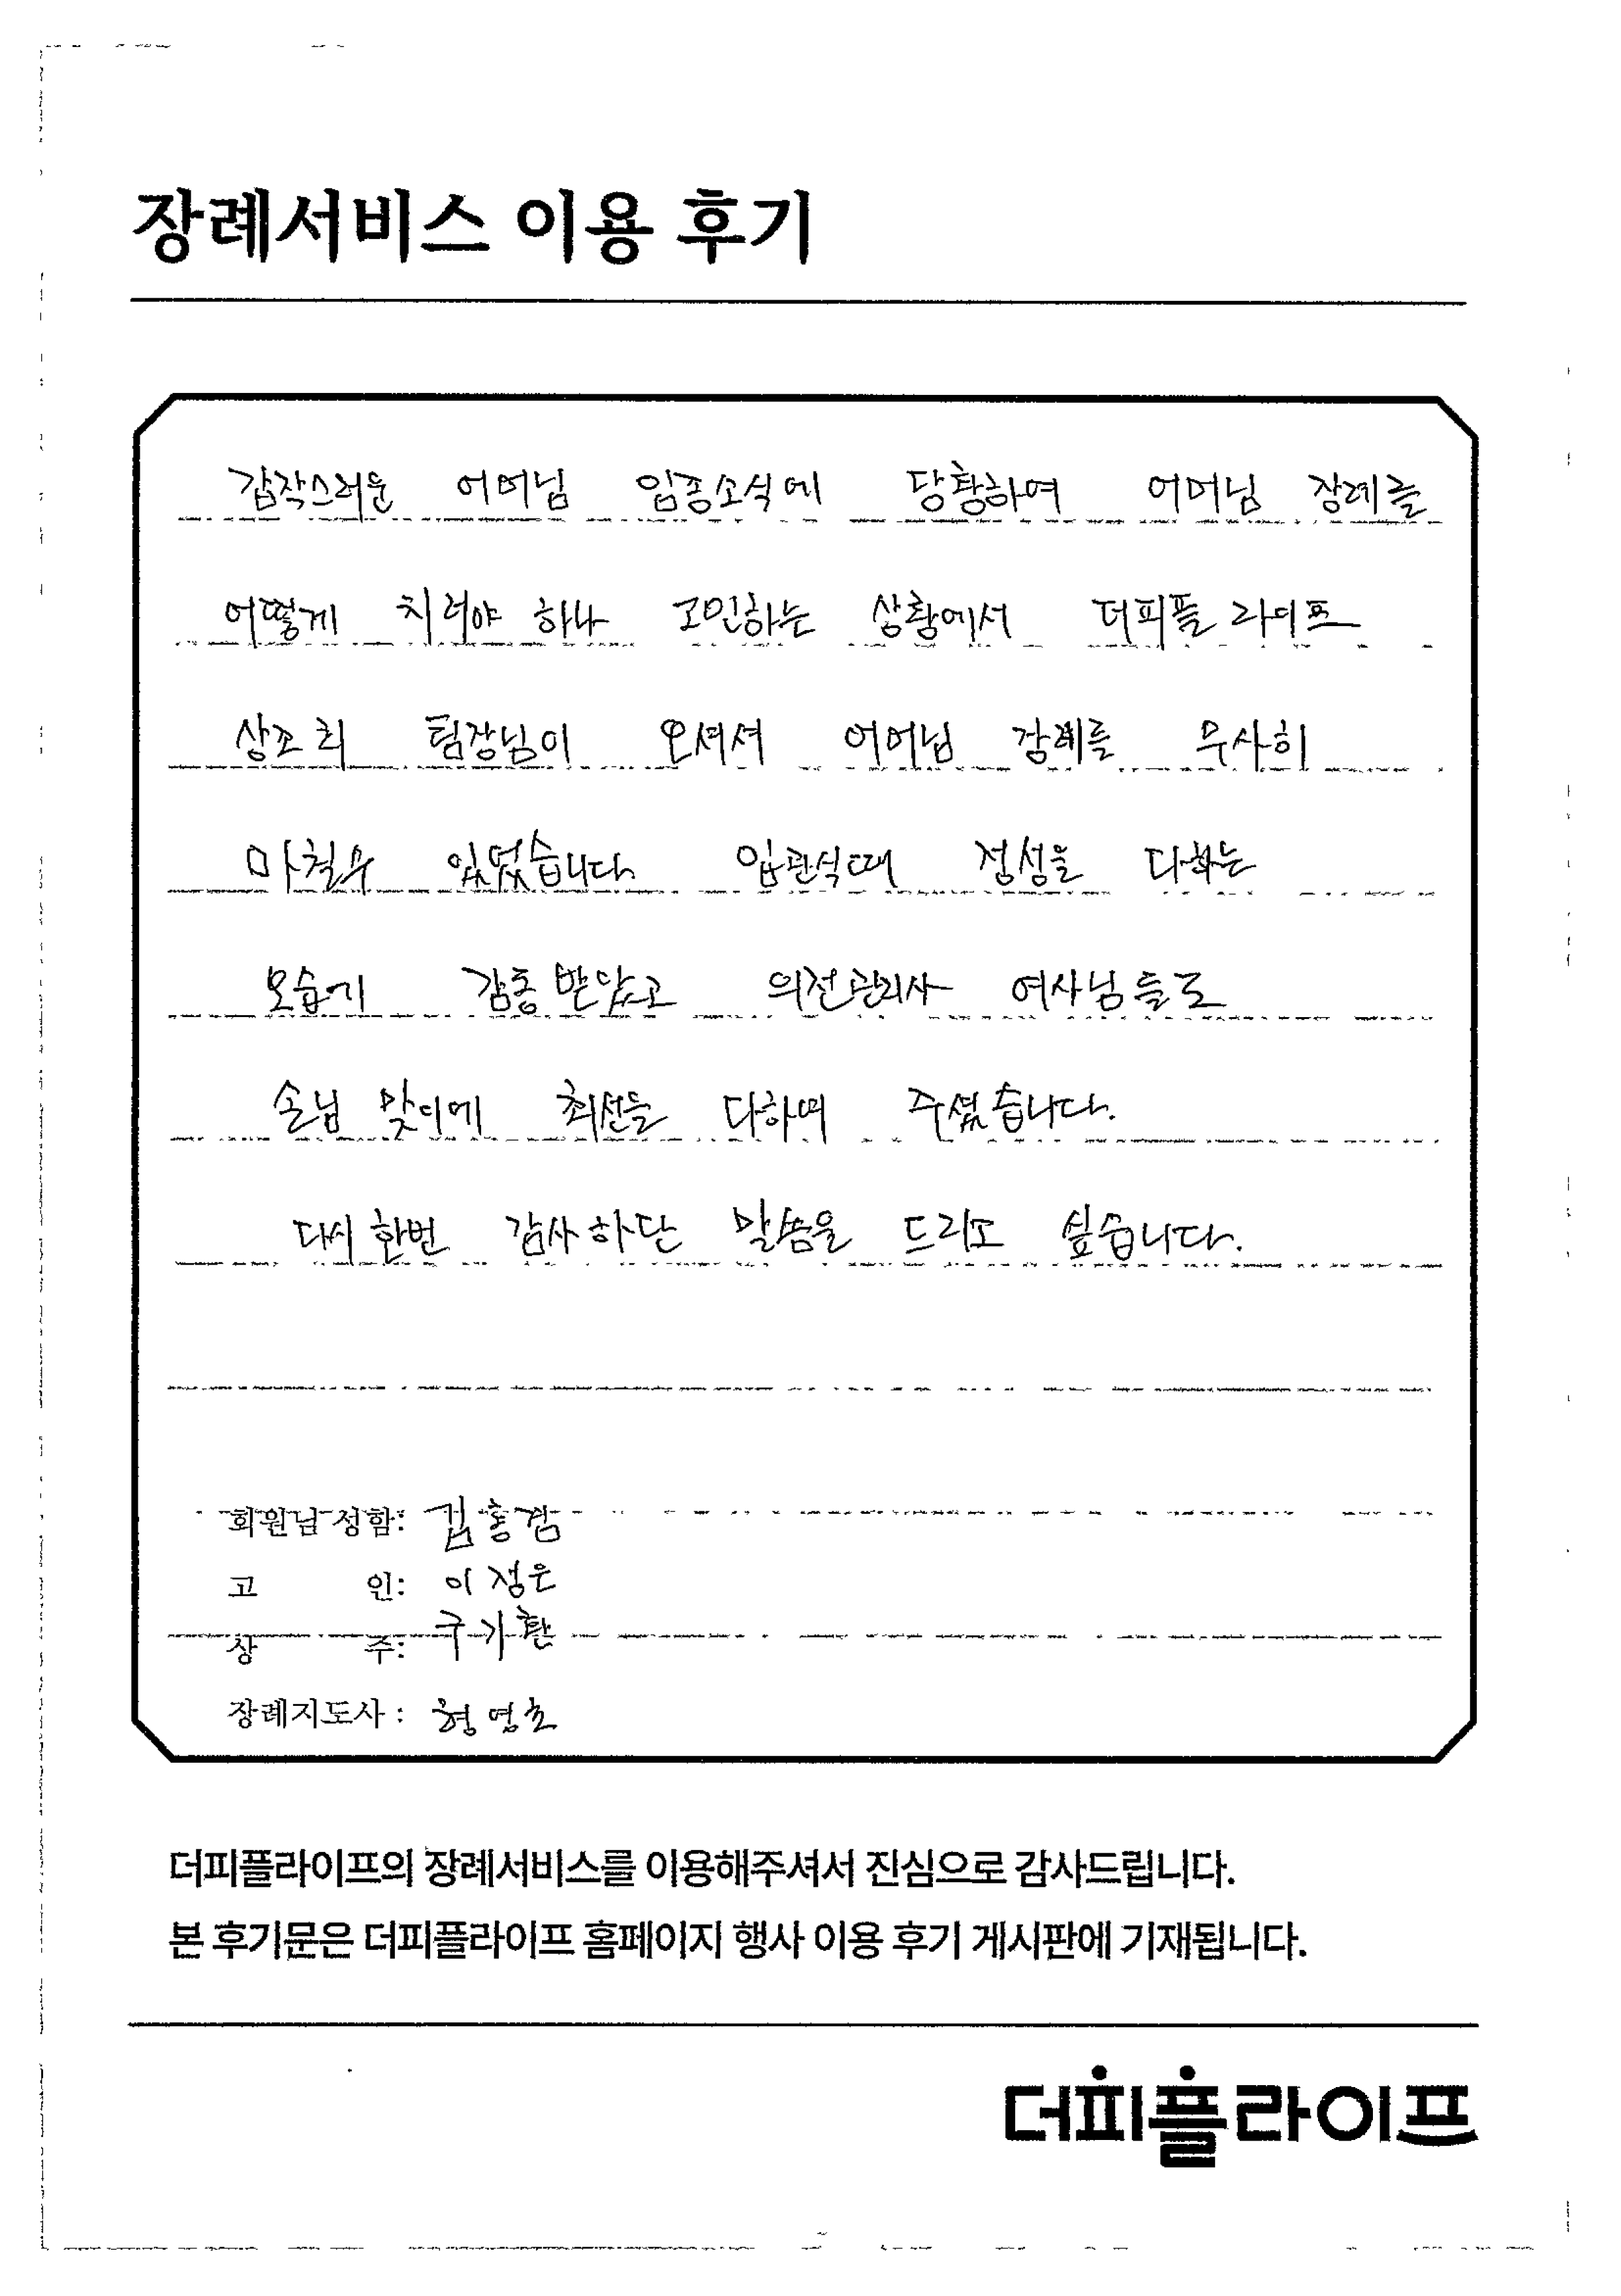 장례서비스 이용 후기
갑작스러운 어머님 임종소식에 당황하여 어머님 장례를
어떻게 치러야 하나 고민하는 상황에서 더피플 라이프
상조회 팀장님이 오셔서 어머님 장례를 무사히
마칠수 있었습니다 입관식때 정성을 다하는
모습에 감동 받았고 의전관리사 여사님들도
손님 맞이에 최선을 다하여 주셨습니다.
다시 한번 감사하단 말씀을 드리고 싶습니다.
회원님 성함:
고 인: 이정은
상 주: 구기환
장례지도사 :
더피플라이프의 장례서비스를 이용해주셔서 진심으로 감사드립니다.
본 후기문은 더피플라이프 홈페이지 행사 이용 후기 게시판에 기재됩니다.
더피플라이프